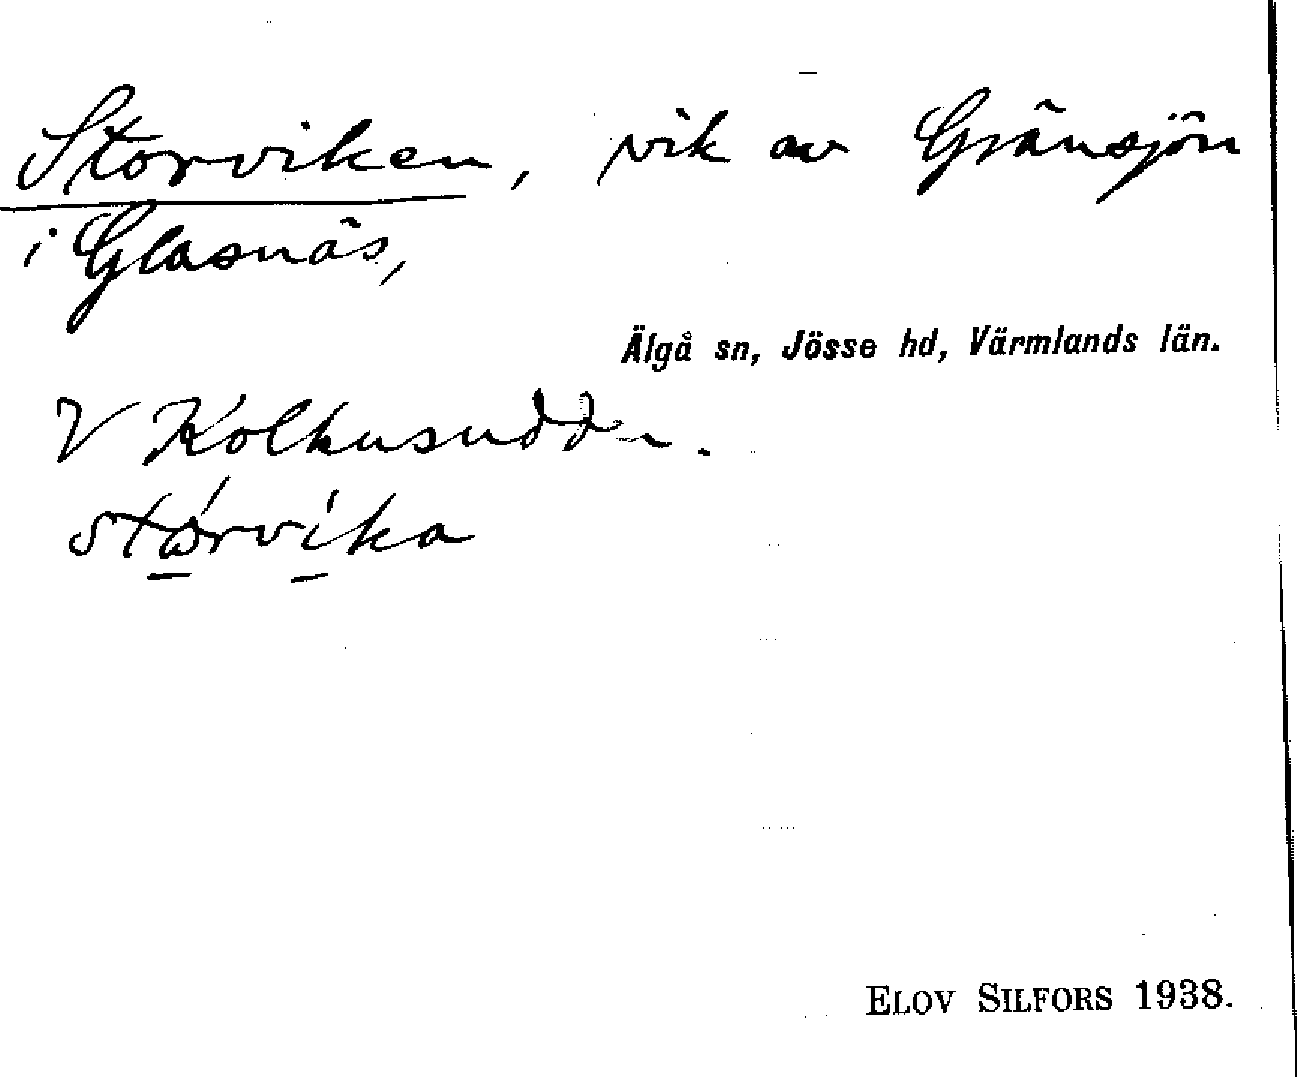 Storviken, vik av Gränsjön
i Glasnäs,
Älgå sn, Jösse hd, Värmlands län.
V Kolhusudden.
stórvíka
ELOV SILFORS 1938.